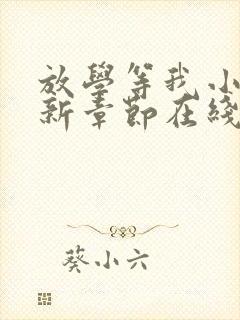 放學等我 小
新章節在綫
葵小六